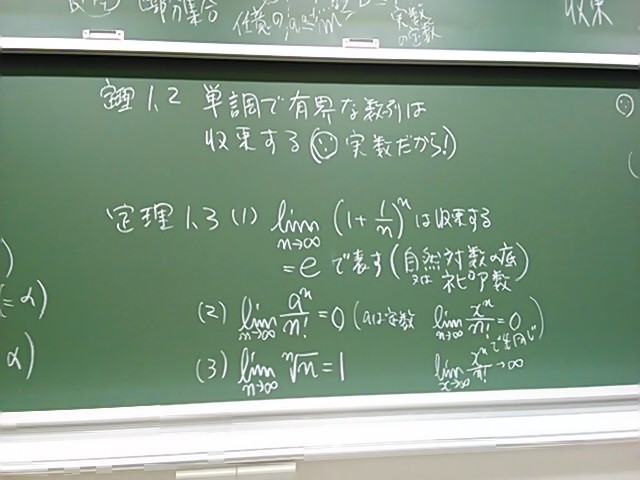 部分集合 任意の 実数の定数 収束
定理1.2 単調で有界な数列は
収束する(∵ 実数だから!)
定理1.3 (1) lim n→∞ (1+1/n)^n は収束する
=e で表す(自然対数の底 又は ネピア数)
(2) lim n→∞ a^n/n! =0 (aは定数 lim n→∞ x^n/n! =0
x^n で
(3) lim n→∞ ⁿ√n =1 lim x→∞ x^n/n! →∞
= α)
α)